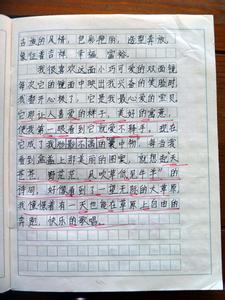 古族的风情，色彩艳丽，造型奔放，
象征着吉祥 幸福 富裕。
我很喜欢这面小巧可爱的双面镜
每次它的镜面中映出我兴奋的笑脸时
我都开心极了，它是我最心爱的宝贝
它那让人喜爱的样子，美好的寓意，
使我第一眼看到它就爱不释手。现在
它成了我形影不离的 物，每当我
看到 盖上那美丽的图案，就想起"天
苍苍，野茫茫，风吹草低见牛羊"的
诗句，好像看到了一望无际的大草原
我憧憬着有一天也能在草原上自由的
奔跑，快乐的歌唱。